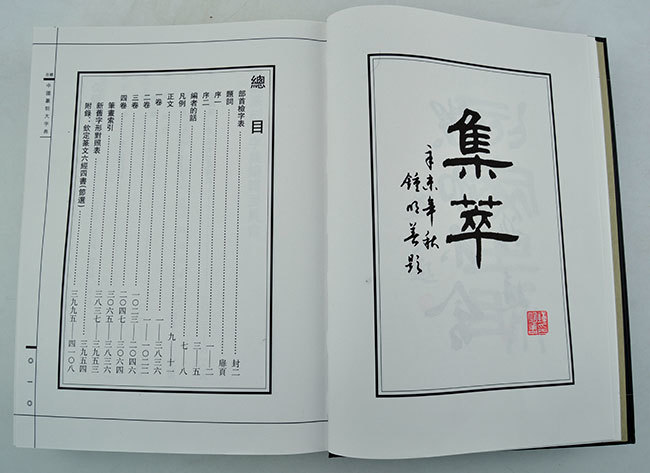 集萃
辛未年秋
鍾明善題
總目
部首檢字表……封二
題詞……扉頁
序一……一—二
序二……三—五
編者的話……七—八
凡例……九—十一
正文……一—三八三六
一卷……一—一〇二二
二卷……一〇二三—二〇四六
三卷……二〇四七—三〇六四
四卷……三〇六五—三八三六
筆畫索引……三八三七—三九五三
新舊字形對照表……三九五四
附錄:欽定篆文六經四書(節選)……三九九五—四一〇八
中國篆刻大字典
〇一〇